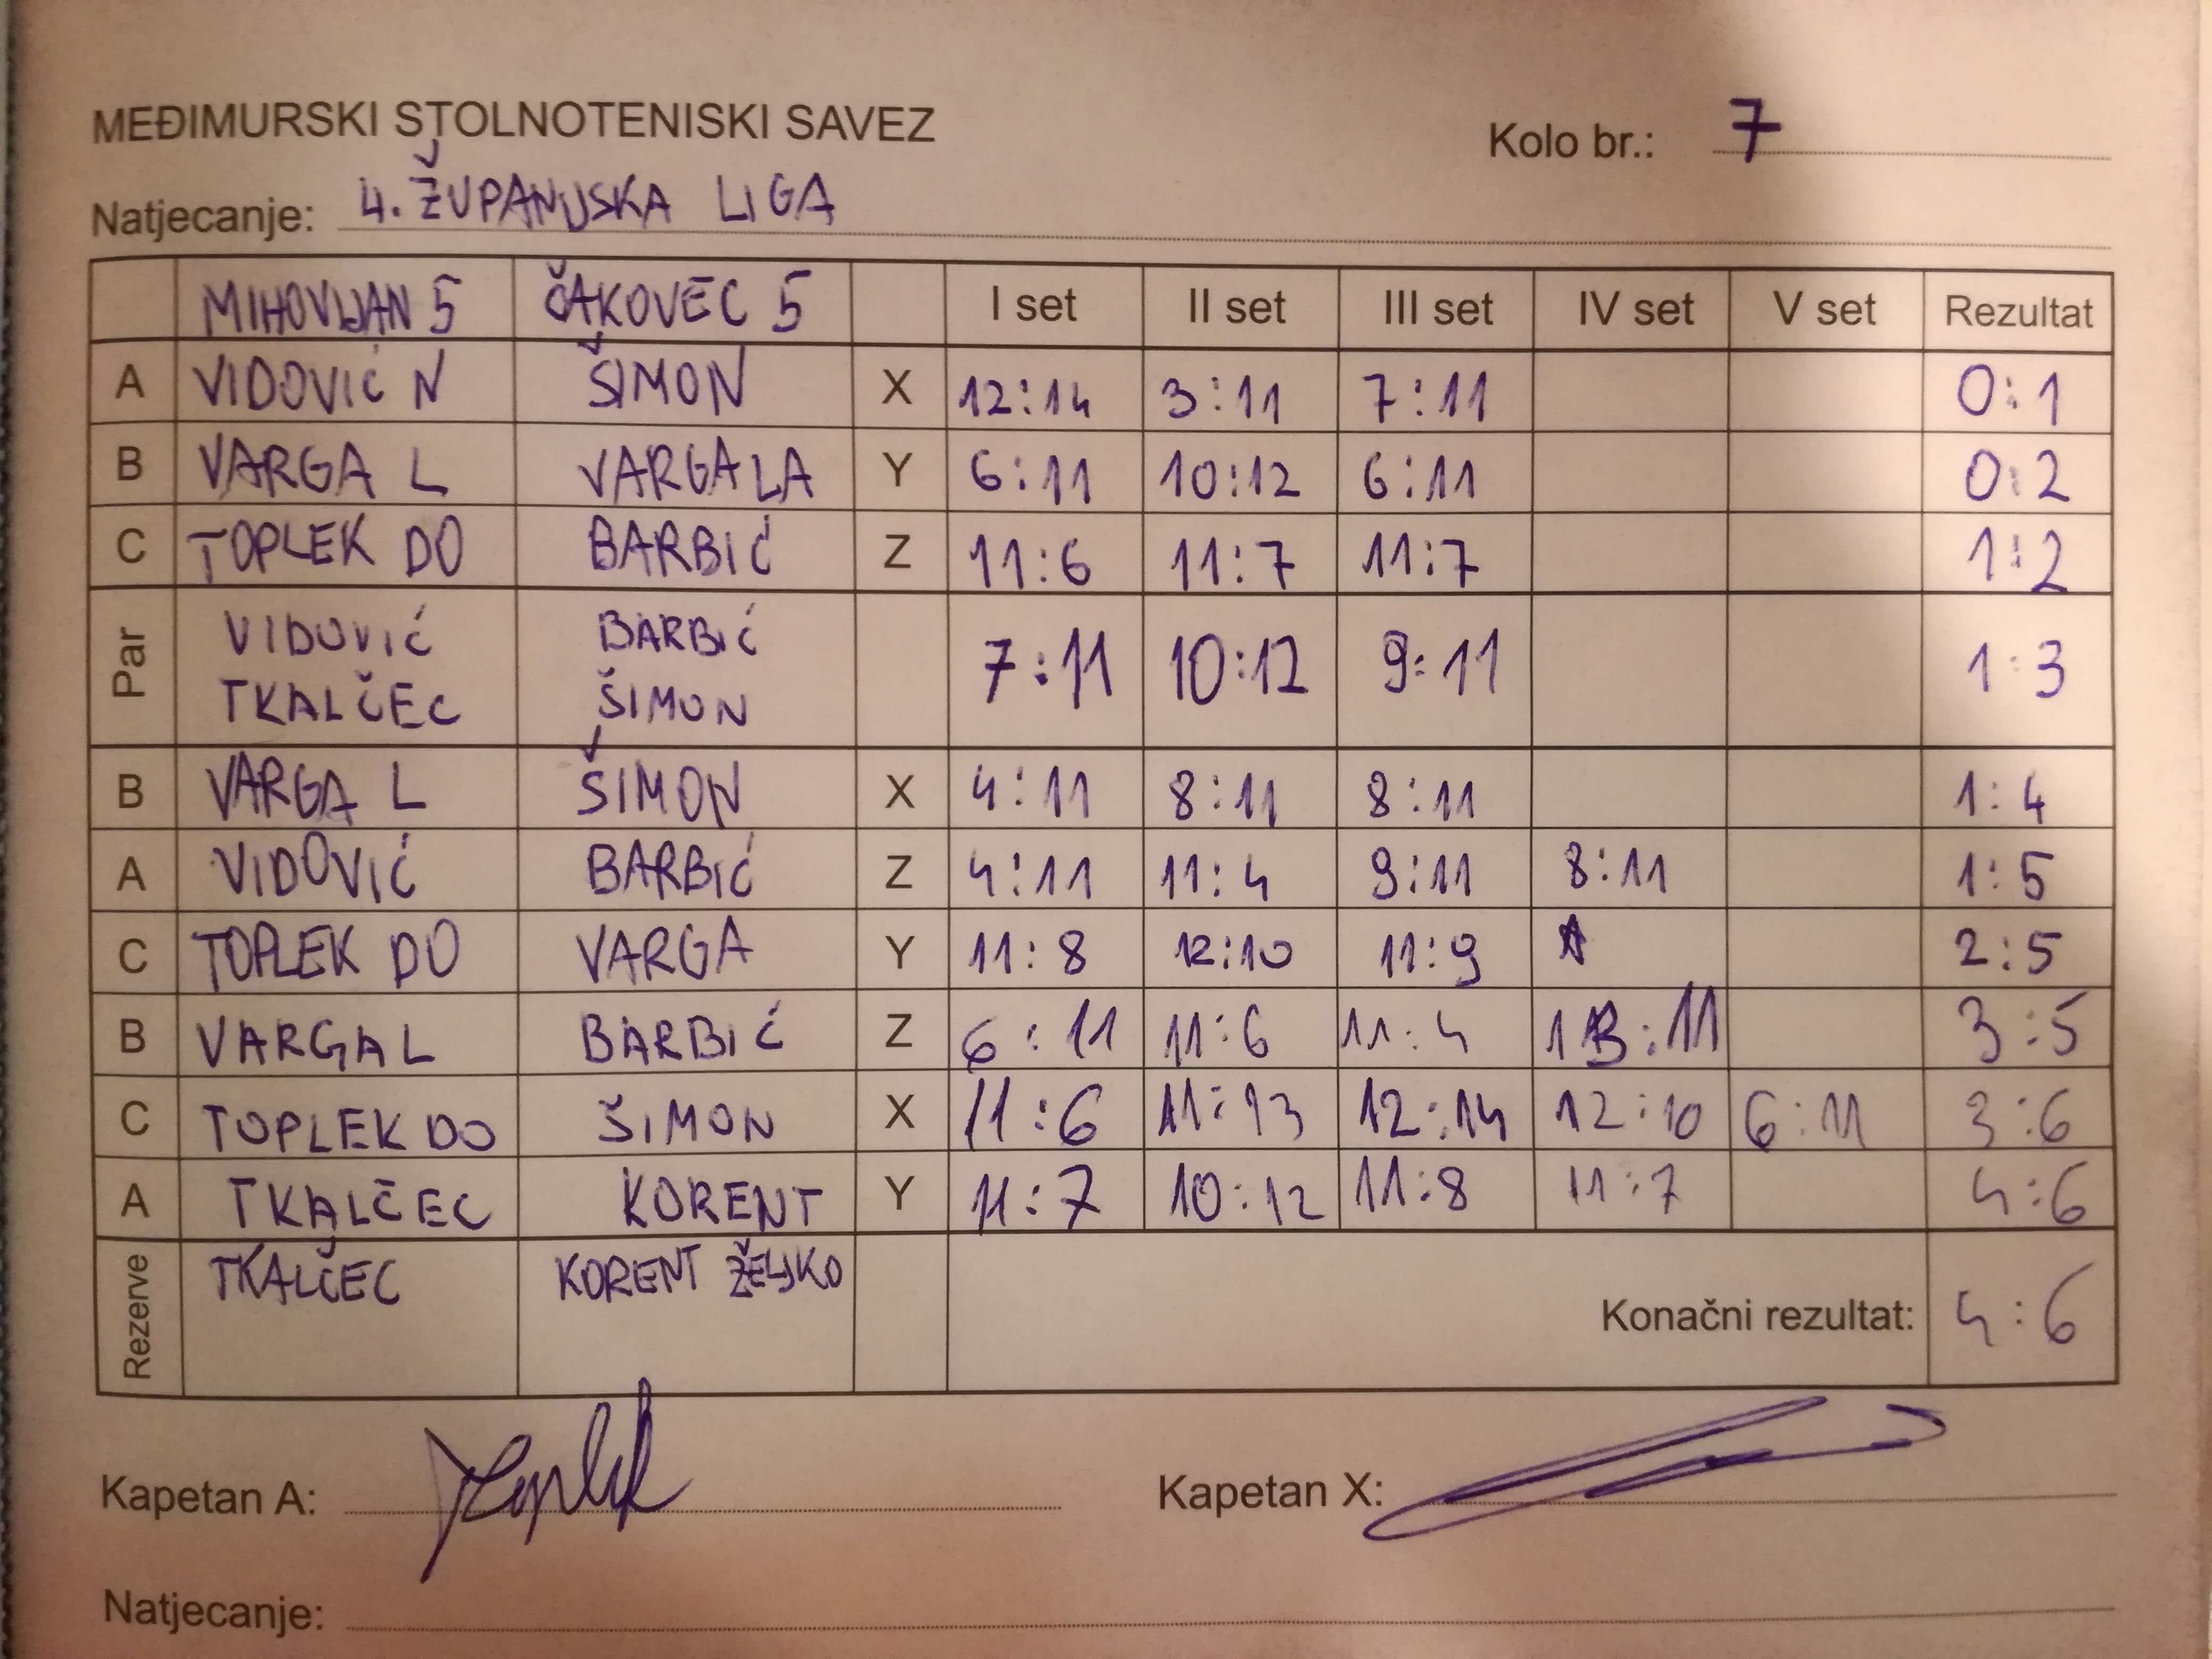 MEĐIMURSKI STOLNOTENISKI SAVEZ
Kolo br.: 7
Natjecanje: 4. ŽUPANIJSKA LIGA
MIHOVLJAN 5 ČAKOVEC 5 I set II set III set IV set V set Rezultat
A VIDOVIĆ N ŠIMON X 12:14 3:11 7:11 0:1
B VARGA L VARGA LA Y 6:11 10:12 6:11 0:2
C TOPLEK DO BARBIĆ Z 11:6 11:7 11:7 1:2
Par VIDOVIĆ BARBIĆ 7:11 10:12 9:11 1:3
TKALČEC ŠIMON
B VARGA L ŠIMON X 4:11 8:11 8:11 1:4
A VIDOVIĆ BARBIĆ Z 4:11 11:4 9:11 8:11 1:5
C TOPLEK DO VARGA Y 11:8 12:10 11:9 2:5
B VARGA L BARBIĆ Z 6:11 11:6 11:4 13:11 3:5
C TOPLEK DO ŠIMON X 11:6 11:13 12:14 12:10 6:11 3:6
A TKALČEC KORENT Y 11:7 10:12 11:8 11:7 4:6
Rezerve TKALČEC KORENT ŽELJKO
Konačni rezultat: 4:6
Kapetan A: Kapetan X:
Natjecanje: